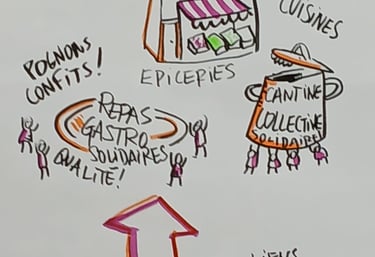 CUISINES
EPICERIES
POGNONS
CONFITS!
REPAS
GASTRO
SOLIDAIRES
QUALITÉ!
CANTINE
COLLECTIVE
SOLIDAIRE